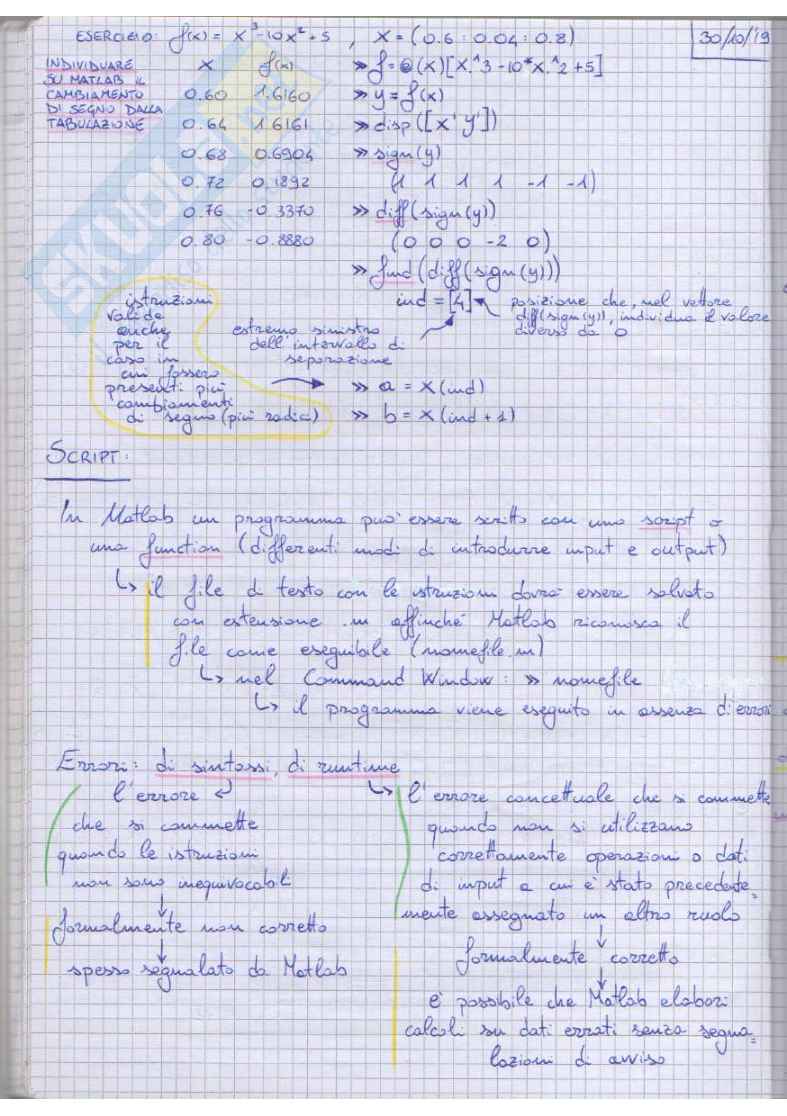 ESERCIZIO: f(x) = x^3-10x^2+5 , x = (0.6 : 0.04 : 0.8)
30/10/19
INDIVIDUARE
SU MATLAB IL
CAMBIAMENTO
DI SEGNO DALLA
TABULAZIONE
x f(x)
0.60 1.6160
0.64 1.6161
0.68 0.6904
0.72 0.1892
0.76 -0.3370
0.80 -0.8880
>> f=@(x)[x.^3-10*x.^2+5]
>> y=f(x)
>> disp([x' y'])
>> sign(y)
(1 1 1 1 -1 -1)
>> diff(sign(y))
(0 0 0 -2 0)
>> find(diff(sign(y)))
ind = [4]
posizione che, nel vettore
diff(sign(y)), individua il valore
diverso da 0
istruzioni
valide
anche
per il
caso in
cui fossero
presenti più
cambiamenti
di segno (più radici)
estremo sinistro
dell'intervallo di
separazione
>> a = x(ind)
>> b = x(ind+1)
SCRIPT:
In Matlab un programma può essere scritto con uno script o
una function (differenti modi di introdurre input e output)
↳ il file di testo con le istruzioni dovrà essere salvato
con estensione .m affinché Matlab riconosca il
file come eseguibile (nomefile.m)
↳ nel Command Window: >> nomefile
↳ il programma viene eseguito in assenza di errori
Errori: di sintassi, di runtime
l'errore
che si commette
quando le istruzioni
non sono inequivocabili
↓
formalmente non corretto
↓
spesso segnalato da Matlab
↳ l'errore concettuale che si commette
quando non si utilizzano
correttamente operazioni o dati
di input a cui è stato precedente=
mente assegnato un altro ruolo
↓
formalmente corretto
↓
è possibile che Matlab elabori
calcoli su dati errati senza segna=
lazioni di avviso
SKUOLA.net